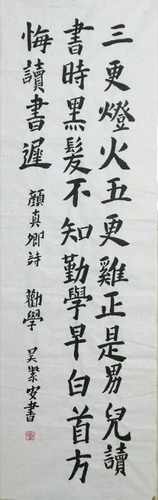 三更燈火五更雞正是男兒讀
書時黑髮不知勤學早白首方
悔讀書遲
顏真卿詩 勸學 吴紫安書